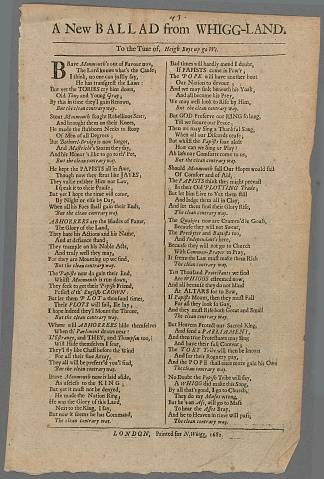 A New BALLAD from WHIGG-LAND.
To the Tune of, Heigh Boys up go We.
BRave Monmouth's out of Favour now,
The Lord knows what's the Cause;
I think, no one can justly say,
He has transgrest the Laws:
But yet the TORIES cry him down,
Old Tony and Young Gray;
By this in time they'l gain Renown,
But the clean contrary way.
Stout Monmouth fought Rebellious Scots,
And brought them on their Knees,
He made the Rabbies Necks to stoop
Of Men of all Degrees;
But Bothwel-Bridge is now forgot,
And Mastricht's Storm they say,
And his Honor's like to go to th' Pot,
But the clean contrary way.
He kept the PAPISTS all in Awe,
They value neither Man nor Law,
But yet I hope the time will come
By Night or else by Day,
When all his Foes shall gain their Ends,
But the clean contrary way.
ABHORRERS are the Blades of Fame,
The Glory of the Land,
They hate his Actions and his Name,
And at defiance stand;
They trample on his Noble Acts,
And truly well they may,
For they are Mounting up we find,
But the clean contrary way.
The Papists now do gain their End,
Whilst Monmouth is run down,
But let them PLOT a thousand times,
Their PLOTS will fail,
I hope indeed they'l Mount the Throne,
But the clean contrary way.
Where will ABHORRERS hide themselves
When th' Parliament draws near?
and Thompson too,
They'l fly like Chaff before the Wind
For all their fine Array,
They all will be preferr'd you'l find,
But the clean contrary way.
Brave Monmouth now is laid aside,
As useless to the KING,
But yet it must not be deny'd,
He was the Glory of this Land,
Next to the King, I say,
But now it seems he has Command,
The clean contrary way.
Bad times will hardly mend I doubt,
If PAPISTS came in Pow'r;
The POPE will have another bout
Our Nation to devour;
And we may sink beneath his Yoak,
And all become his Prey,
We may well look to Rise by Him,
But the clean contrary way.
But GOD preserve our KING so long,
Till we secure our Peace;
Then we may Sing a Thankful Song,
When all our Discords cease;
But whilst the Papists fear alass
How can we Sing or Play?
As has our Comforts come to us,
The clean contrary way.
Should Monmouth fall Our Hopes would fall
Of Comfort and of Aid,
The PAPISTS think they might prevail
In their Old PLOTTING Trade;
But let him Live to Vex them still
And lodge them all in Clay,
And let them find their Glory Rise,
The clean contrary way.
The Quakers now are Cramm'd in Goals,
Because they will not Swear,
The Presbyter and Baptist too,
And Independent's here,
Because they will not go to Church
With Common-Prayer to Pray,
It seems the Law must make them Rich
The clean contrary way.
Ten Thousand Protestants we find
Are WHIGGS esteemed now,
And all because they do not Mind
At ALTARS for to Bow,
If Papists Mount, then they must Fall
For all they look so Gay,
And they must Rise both Great and Small
The clean contrary way.
But Heavens Protect our Sacred King,
And send a PARLIAMENT,
And then true Protestants may Sing
And have their full Content;
The TORY Tribe will then be known
And for their Roguery pay,
And the POPE shall once more gain his Own
The clean contrary way.
No Doubt the Papist Tribe will say,
A WHIGG did make this Song,
By all that's good, I go to Church,
They do my Muses wrong,
But he's an Ass, will go to Mass
To hear the Asses Bray,
And he to Heaven in time will pass,
The clean contrary way.
LONDON, Printed for N. Whigg, 1682.